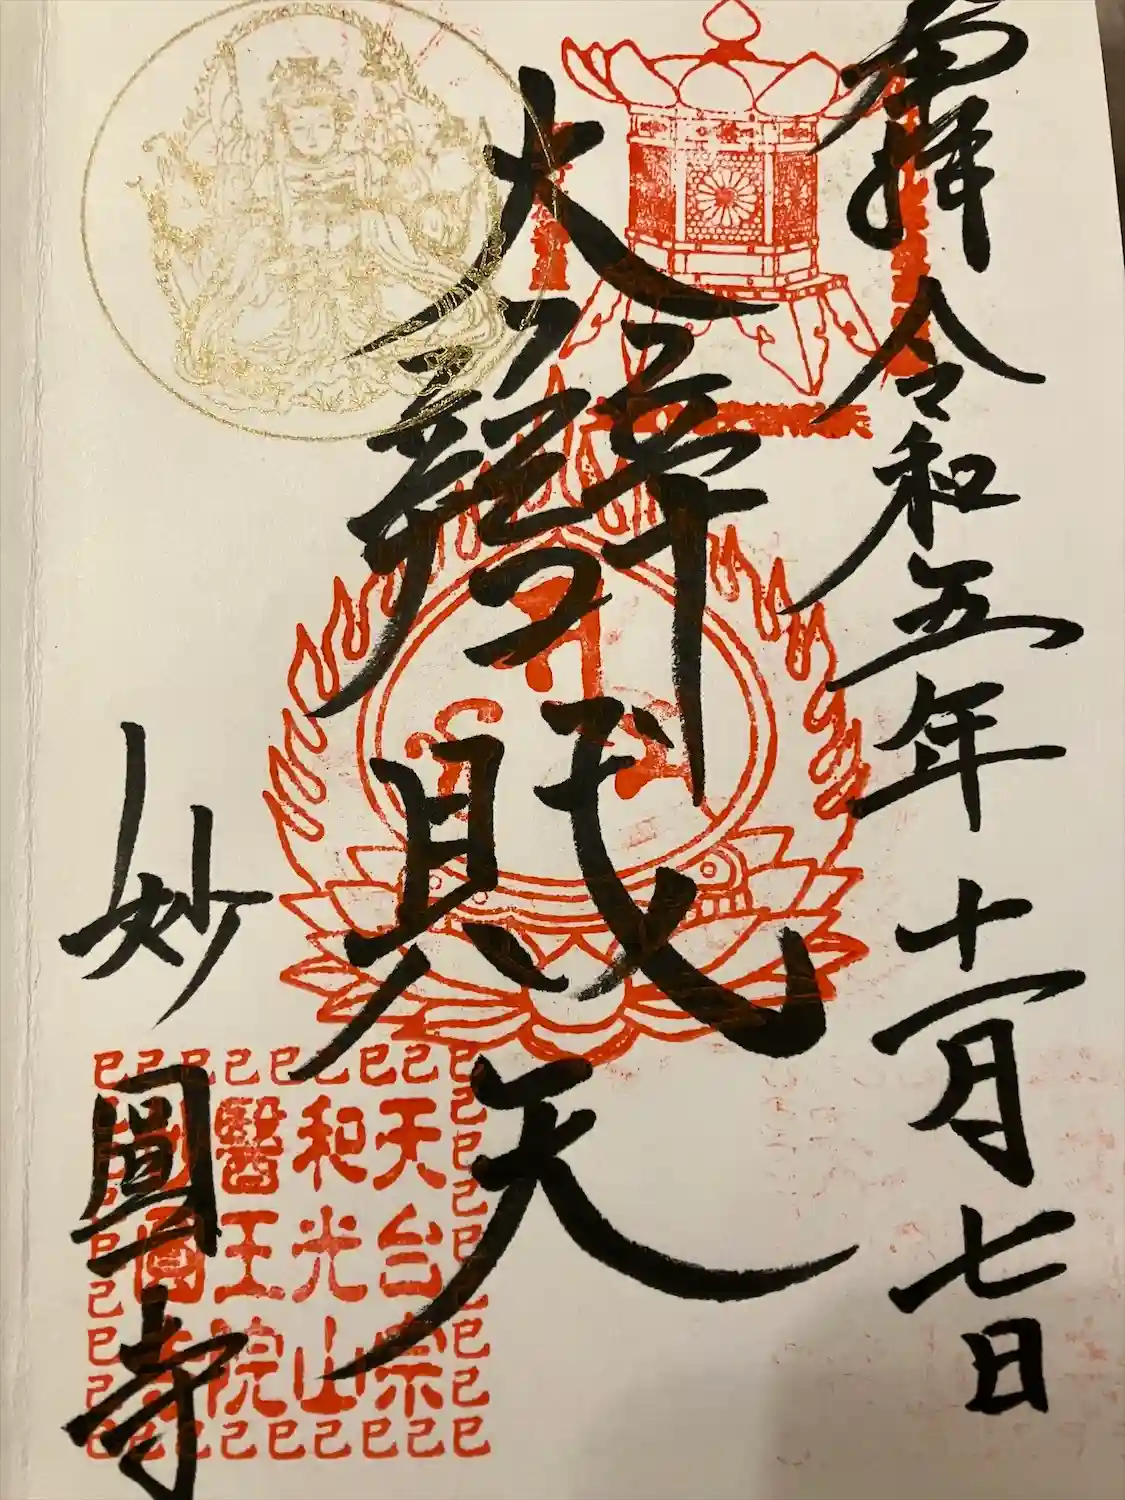 奉拝 令和五年十一月七日
大辯財天
妙圓寺
天台宗
和光山
醫王院
圓寺